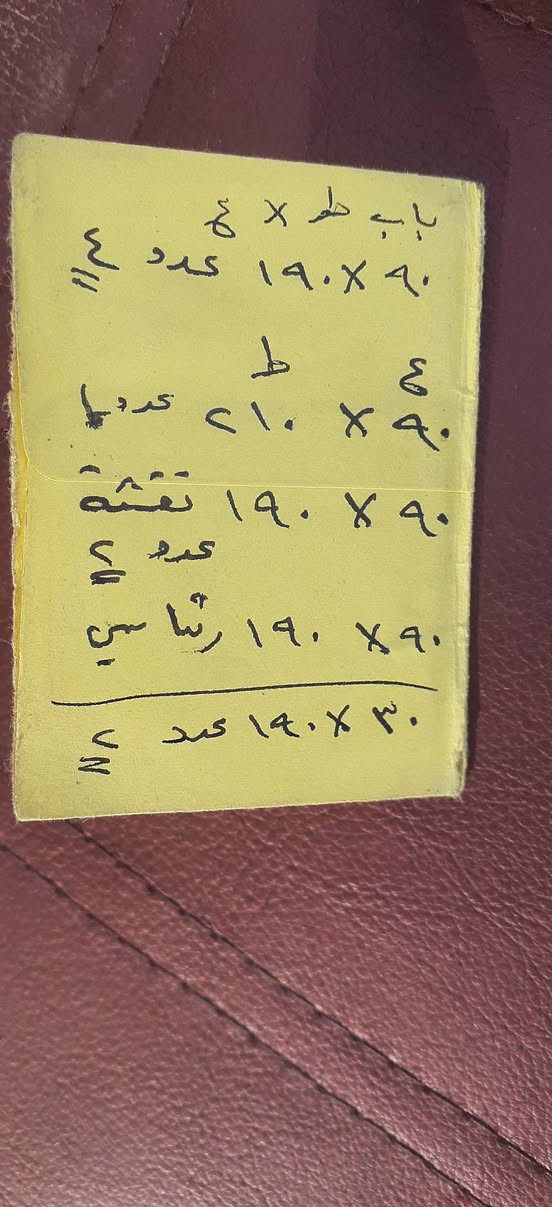 باب ط × ع
٩٠ × ١٩٠ عدد ٤
ع ط
٩٠ × ٢١٠ عدد ١
٩٠ × ١٩٠ نقشة
عدد ٢
٩٠ × ١٩٠
٣٠ × ١٩٠ عدد ٢